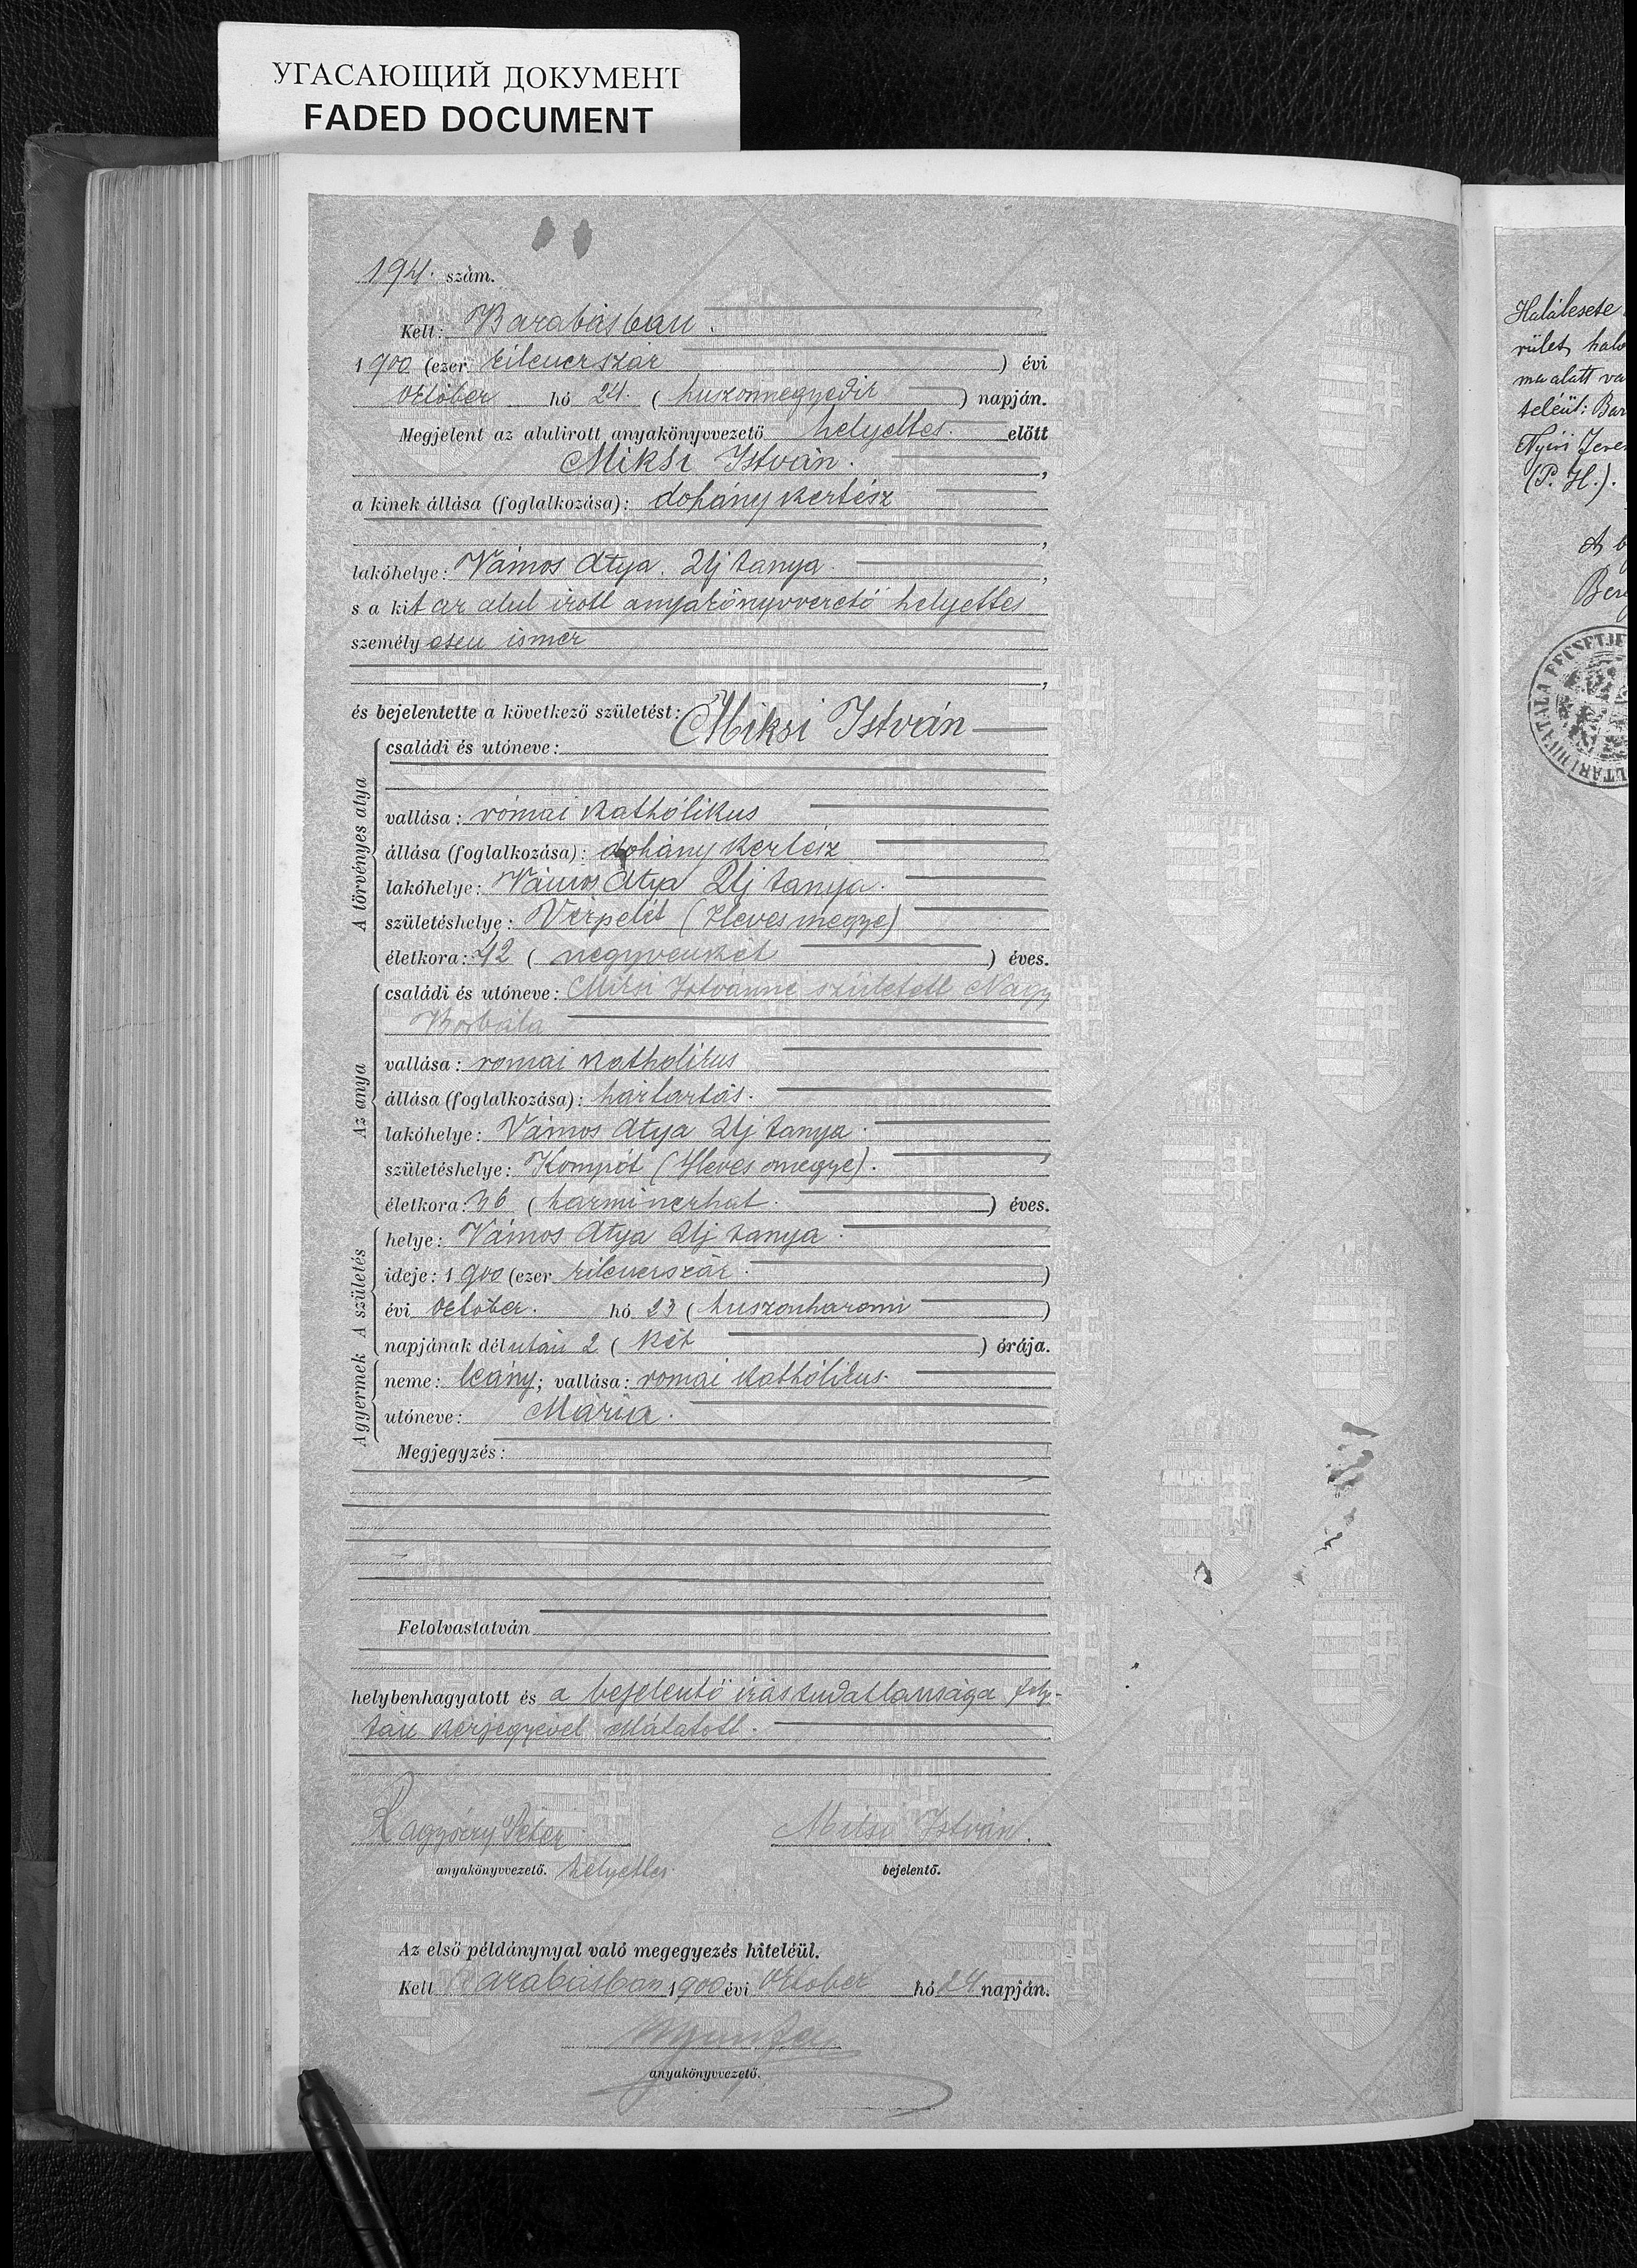 УГАСАЮЩИЙ ДОКУМЕНТ
FADED DOCUMENT
194. szám.
Kelt: Barabásban.
1900 (ezer kilencszáz) évi
október hó 24. (huszonnegyedik) napján.
Megjelent az alulirott anyakönyvvezető helyettes. előtt
Miksi István.,
a kinek állása (foglalkozása): dohány kertész
,
lakóhelye: Vámos Atya. Uj tanya.,
s a kit az alul irott anyakönyvvezető helyettes
személyesen ismer
,
és bejelentette a következő születést:
A törvényes atya
családi és utóneve: Miksi István
vallása: római katholikus
állása (foglalkozása): dohány kertész
lakóhelye: Vámos Atya Uj tanya.
születéshelye: Verpelét (Hevesmegye)
életkora: 42 (negyvenkét) éves.
Az anya
családi és utóneve: Miksi Istvánné született Nagy
Borbála
vallása: romai katholikus
állása (foglalkozása): háztartás.
lakóhelye: Vámos Atya Uj tanya.
születéshelye: Kompót (Heves megye).
életkora: 36 (harminczhat.) éves.
A születés
helye: Vámos Atya Uj tanya.
ideje: 1900 (ezer kilenczszáz.)
évi October. hó 23 (huszonharom)
napjának délután 2 (két) órája.
A gyermek
neme: leány; vallása: romai katholikus.
utóneve: Mária.
Megjegyzés:
Felolvastatván
helybenhagyatott és a bejelentő irástudatlansága foly-
tán kézjegyével ellátatott.
Péter Miksi István.
anyakönyvvezető. helyettes. bejelentő.
Az első példánynyal való megegyezés hiteléül.
Kelt Barabásban 1900 évi Oktober hó 24 napján.
anyakönyvvezető.
Halálesete
rület, hal
ma alatt va
teleül: Bar
Nyiri
(P. H.).
A b
Ber